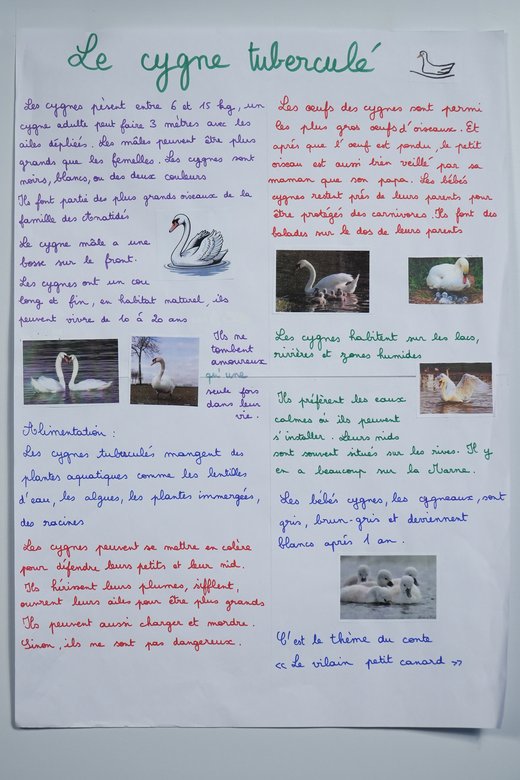 Le cygne tuberculé
Les cygnes pèsent entre 6 et 15 kg, un
cygne adulte peut faire 3 mètres avec les
ailes dépliées. Les mâles peuvent être plus
grands que les femelles. Les cygnes sont
noirs, blancs, ou des deux couleurs
Ils font partie des plus grands oiseaux de la
famille des Anatidés
Le cygne mâle a une
bosse sur le front.
Les cygnes ont un cou
long et fin, en habitat naturel, ils
peuvent vivre de 10 à 20 ans
Ils ne
tombent
amoureux
qu'une
seule fois
dans leur
vie.
Alimentation :
Les cygnes tuberculés mangent des
plantes aquatiques comme les lentilles
d'eau, les algues, les plantes immergées,
des racines
Les cygnes peuvent se mettre en colère
pour défendre leurs petits et leur nid.
Ils hérissent leurs plumes, sifflent,
ouvrent leurs ailes pour être plus grands
Ils peuvent aussi charger et mordre.
Sinon, ils ne sont pas dangereux.
Les œufs des cygnes sont parmi
les plus gros œufs d'oiseaux. Et
après que l'œuf est pondu, le petit
oiseau est aussi bien veillé par sa
maman que son papa. Les bébés
cygnes restent près de leurs parents pour
être protégés des carnivores. Ils font des
balades sur le dos de leurs parents
Les cygnes habitent sur les lacs,
rivières et zones humides
Ils préfèrent les eaux
calmes où ils peuvent
s'installer. Leurs nids
sont souvent situés sur les rives. Il y
en a beaucoup sur la Marne.
Les bébés cygnes, les cygneaux, sont
gris, brun-gris et deviennent
blancs après 1 an.
C'est le thème du conte
« Le vilain petit canard »